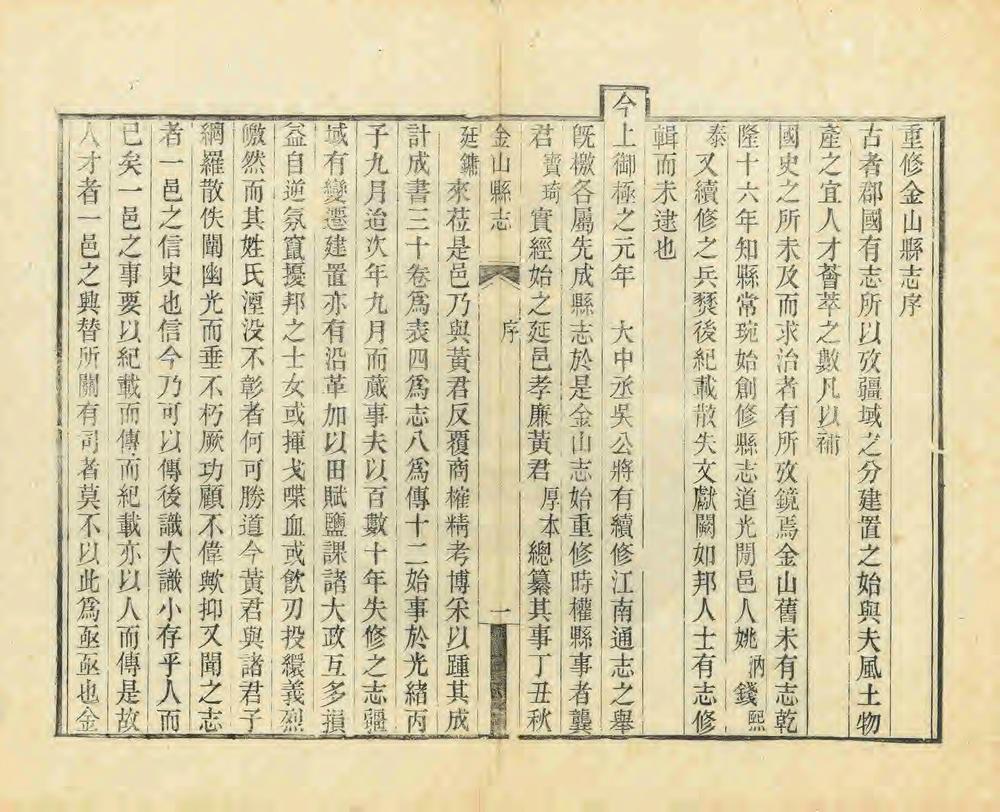 重修金山縣志序
古者郡國有志所以攷疆域之分建置之始與夫風土物
產之宜人才薈萃之數凡以補
國史之所未及而求治者有所攷鏡焉金山舊未有志乾
隆十六年知縣常琬始創修縣志道光閒邑人姚汭錢熙
泰又續修之兵燹後紀載散失文獻闕如邦人士有志修
輯而未逮也
今上御極之元年 大中丞吳公將有續修江南通志之舉
旣檄各屬先成縣志於是金山志始重修時權縣事者龔
君寶琦實經始之延邑孝廉黃君厚本總纂其事丁丑秋
金山縣志 序 一
廷鏞來莅是邑乃與黃君反覆商榷精考博采以踵其成
計成書三十卷爲表四爲志八爲傳十二始事於光緒丙
子九月迨次年九月而蕆事夫以百數十年失修之志疆
域有變遷建置亦有沿革加以田賦鹽課諸大政互多損
益自逆氛竄擾邦之士女或揮戈喋血或飮刃投繯義烈
皦然而其姓氏湮没不彰者何可勝道今黃君與諸君子
網羅散佚闡幽光而垂不朽厥功顧不偉歟抑又聞之志
者一邑之信史也信今乃可以傳後識大識小存乎人而
已矣一邑之事要以紀載而傳而紀載亦以人而傳是故
人才者一邑之興替所關有司者莫不以此爲亟亟也金